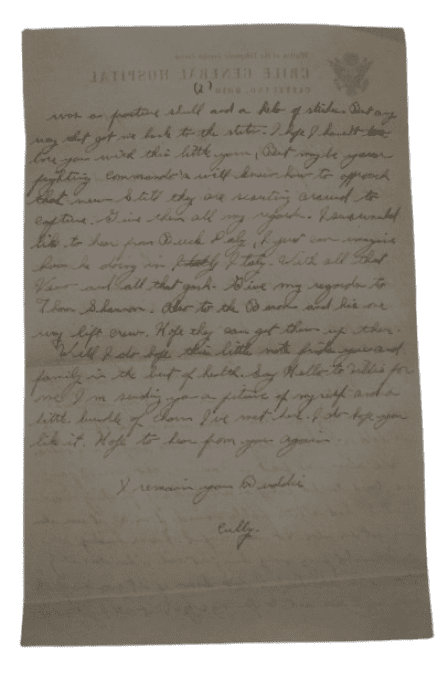 CRILE GENERAL HOSPITAL
CLEVELAND, OHIO
was an practice shell and a lot of stiches. But any
way that got me back to the states. I hope I havent
bore you with this little yarn, But maybe your
fighting commando's will know how to approach
that new Still they are scouting around to
capture. Give them all my regards. I sure would
like to hear from Buck Daly, I just can imagine
how he doing in Italy. With all that
Vino and all that junk. Give my regards to
Thom Shannon. Also to the Baron and his one
way lift crew. Hope they can get them up there.
Will I do hope this little note finds you and
family in the best of health. Say Hello to for
me. I'm sending you a picture of my self and a
little bundle of charm I've met here. I do hope you
like it. Hope to hear from you again.
I remain your Buddie
Cully.